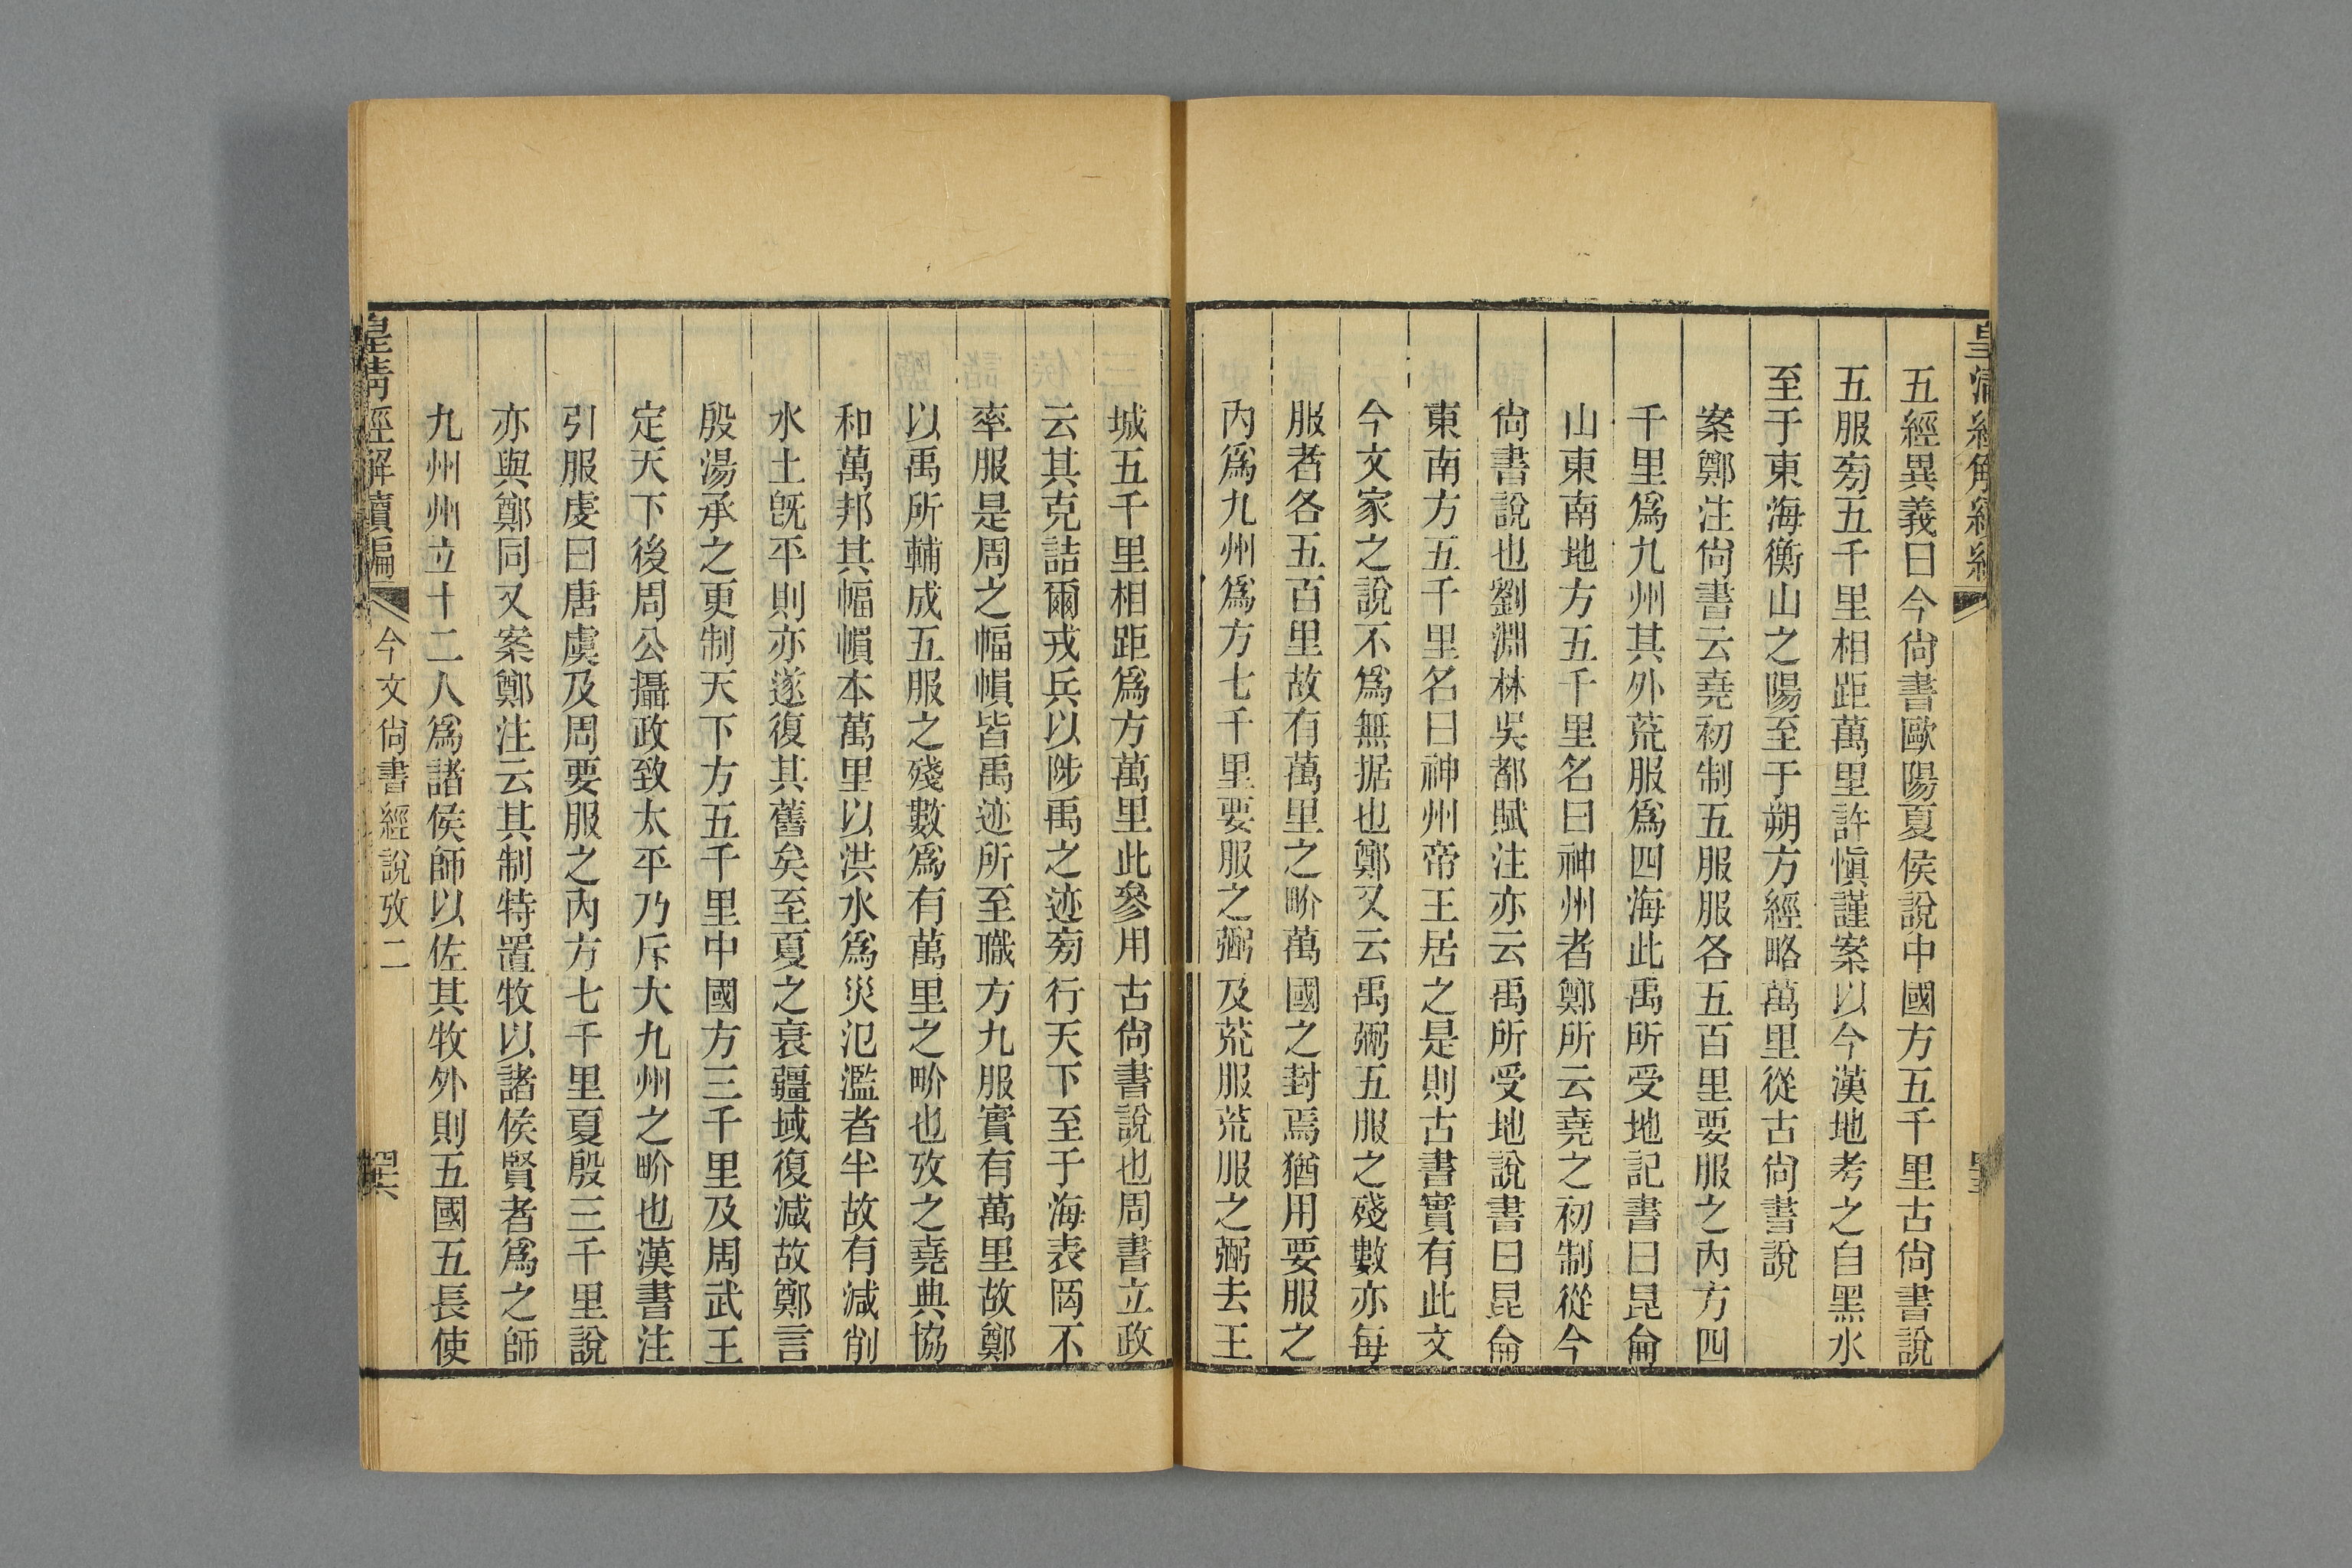 五經異義曰今尙書歐陽夏侯說中國方五千里古尙書說
五服菊五千里相距萬里許愼謹案以今漢地考之自黑水
至于東海衡山之陽至于朔方經略萬里從古尙書說
案鄭注尙書云堯初制五服服各五百里要服之內方四
千里爲九州其外荒服爲四海此禹所受地記書曰昆侖
山東南地方五千里名曰神州者鄭所云堯之初制從今
尙書說也劉淵林吳都賦注亦云禹所受地說書曰昆侖
東南方五千里名曰神州帝王居之是則古書實有此文
今文家之說不爲無据也鄭又云禹弼五服之殘數亦每
服者各五百里故有萬里之畍萬國之封焉猶用要服之
內爲九州爲方七千里要服之弼及荒服荒服之弼去王
城五千里相距爲方萬里此參用古尙書說也周書立政
云其克詰爾戎兵以陟禹之迹菊行天下至于海表罔不
率服是周之幅幀皆禹迹所至職方九服實有萬里故鄭
以禹所輔成五服之殘數爲有萬里之畍也攷之堯典協
和萬邦其幅幀本萬里以洪水爲災氾濫者半故有減削
水土旣平則亦遂復其舊矣至夏之衰疆域復減故鄭言
殷湯承之更制天下方五千里中國方三千里及周武王
定天下後周公攝政致太平乃斥大九州之畍也漢書注
引服虔曰唐虞及周要服之內方七千里夏殷三千里說
亦與鄭同又案鄭注云其制特置牧以諸侯賢者爲之師
九州州立十二人爲諸侯師以佐其牧外則五國五長使
皇清經解續編
今文尙書經說攷二